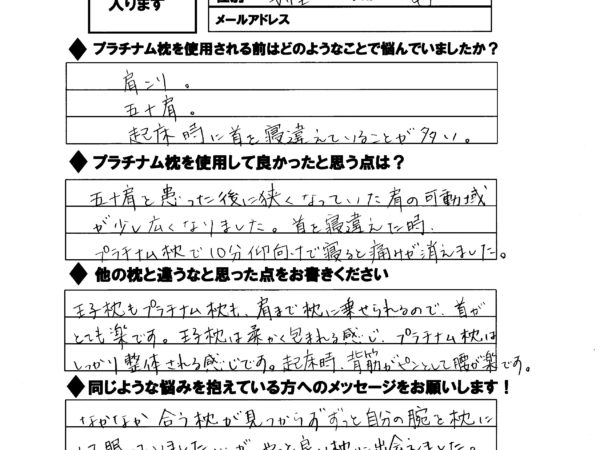 入ります
メールアドレス
◆プラチナム枕を使用される前はどのようなことで悩んでいましたか?
肩こり。
五十肩。
起床時に首を寝違えていることが多い。
◆プラチナム枕を使用して良かったと思う点は?
五十肩を患った後に狭くなっていた肩の可動域
が少し広くなりました。首を寝違えた時、
プラチナム枕で10分仰向けで寝ると痛みが消えました。
◆他の枕と違うなと思った点をお書きください
王子枕もプラチナム枕も、肩まで枕に乗せられるので、首が
とても楽です。王子枕は柔かく包まれる感じ、プラチナム枕は
しっかり整体される感じです。起床時、背筋がピンとして腰が楽です。
◆同じような悩みを抱えている方へのメッセージをお願いします!
なかなか合う枕が見つからずずっと自分の腕を枕に
して眠っていましたが、やっと良い枕に出会えました。